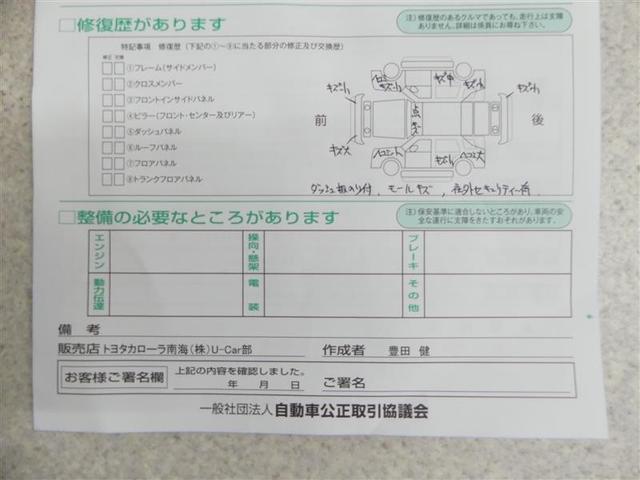 □修復歴があります
注）修復歴のあるクルマであっても、走行上は支障
ありません。詳細は係員にお尋ね下さい。
特記事項　修復歴（下記の①〜⑧に当たる部分の修正及び交換歴）
修正 交換
①フレーム（サイドメンバー）
②クロスメンバー
③フロントインサイドパネル
④ピラー（フロント・センター及びリアー）
⑤ダッシュパネル
⑥ルーフパネル
⑦フロアパネル
⑧トランクフロアパネル
前
後
キズ小
キズ中
キズ小
キズ大
ヘコミ小
ヘコミ大
点キズ
モールキズ
□整備の必要なところがあります
注）保安基準に適合しないところがあり、車両の安
全な運行に支障をきたすおそれがあります。
エンジン
操向・懸架
ブレーキ
動力伝達
電装
その他
備考
販売店 トヨタカローラ南海（株）U-Car部　作成者　豊田 健
お客様ご署名欄
上記の内容を確認しました。
年　月　日　ご署名
一般社団法人 自動車公正取引協議会